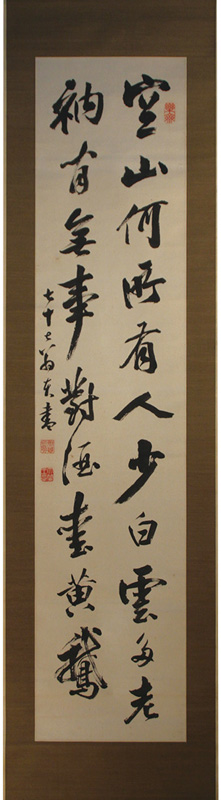 空山何所有人少白雲多老
衲有無事對酒畫黄鵝
七十七翁